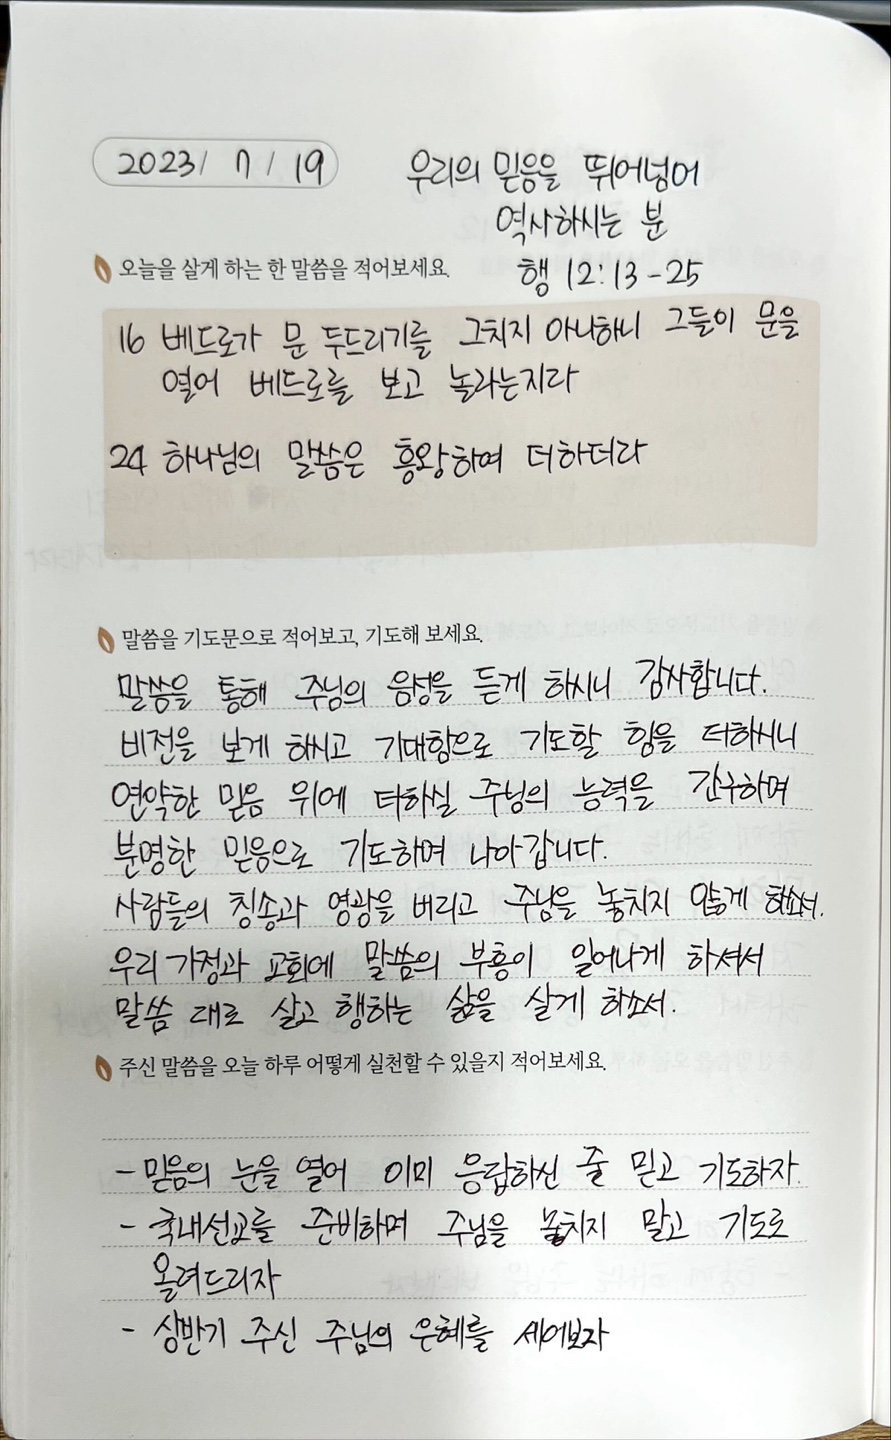 2023/ 7 / 19
우리의 믿음을 뛰어넘어
역사하시는 분
행 12:13-25
오늘을 살게 하는 한 말씀을 적어보세요.
16 베드로가 문 두드리기를 그치지 아니하니 그들이 문을
열어 베드로를 보고 놀라는지라
24 하나님의 말씀은 흥왕하여 더하더라
말씀을 기도문으로 적어보고, 기도해 보세요.
말씀을 통해 주님의 음성을 듣게 하시니 감사합니다.
비전을 보게 하시고 기대함으로 기도할 힘을 더하시니
연약한 믿음 위에 더하실 주님의 능력을 간구하며
분명한 믿음으로 기도하며 나아갑니다.
사람들의 칭송과 영광을 버리고 주님을 놓치지 않게 하소서.
우리 가정과 교회에 말씀의 부흥이 일어나게 하셔서
말씀 대로 살고 행하는 삶을 살게 하소서.
주신 말씀을 오늘 하루 어떻게 실천할 수 있을지 적어보세요.
- 믿음의 눈을 열어 이미 응답하신 줄 믿고 기도하자.
- 국내선교를 준비하며 주님을 놓치지 말고 기도로
올려드리자
- 상반기 주신 주님의 은혜를 세어보자